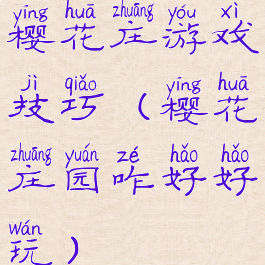 yíng huā zhuāng yóu xì
樱花庄游戏
jì qiǎo yíng huā
技巧（樱花
zhuāng yuán zé hǎo hǎo
庄园咋好好
wán
玩）